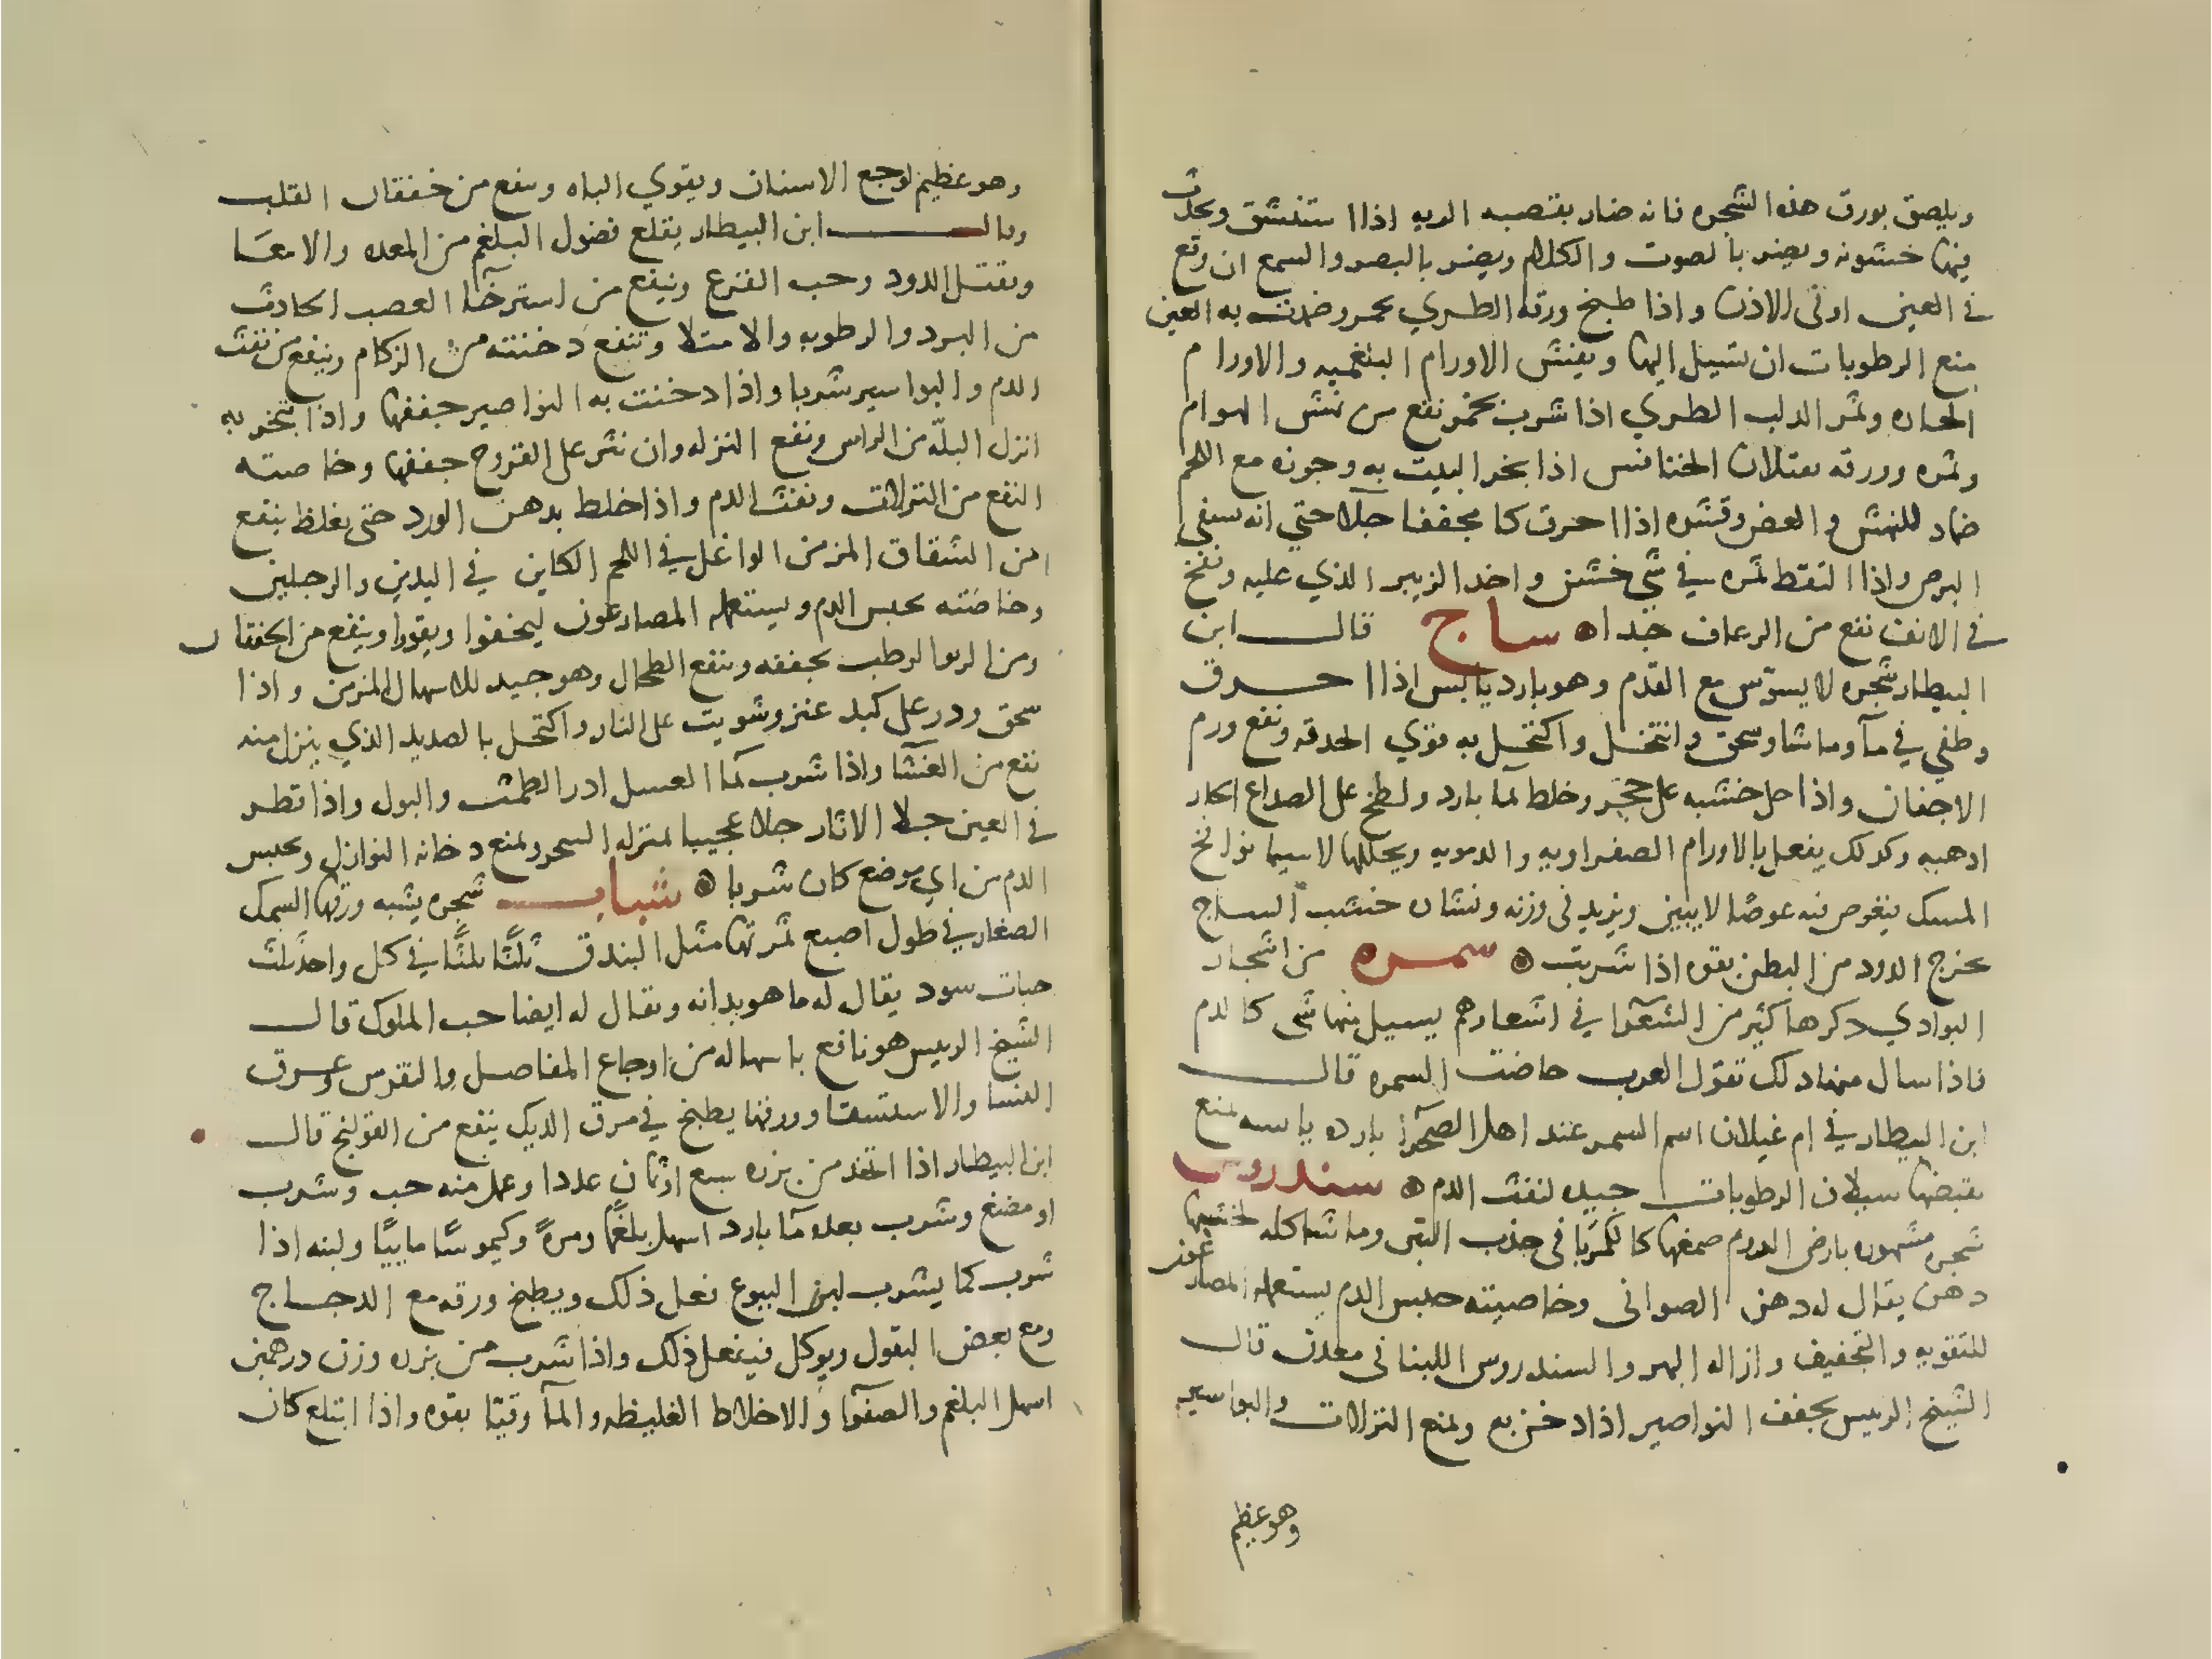 ويلصق بورق هذه الشجره فانه ضار بقصبه الريه اذا استنشق ويحدث
فيها خشونه ويضر بالصوت والكلام ويضر بالبصر والسمع ان وقع
في العين او في الاذن واذا طبخ ورقه الطري بخمر وضمدت به العين
منع الرطوبات ان تسيل اليها ويفش الاورام البلغميه والاورام
الحاره وثمر الدلب الطري اذا شرب بخمر نفع من نهش الهوام
وثمره وورقه يقتلان الخنافس اذا بخر البيت به وجوزه مع اللحم
ضماد للنهش والعض وقشره اذا احرق كا مجففا جلا حتي انه يشفي
البرص واذا التقط ثمره في شي خشن واخد الزبير الذي عليه ونفخ
في الانف نفع من الرعاف جدا ساج قال ابن
البيطار شجره لا يسوس مع القدم وهو بارد يابس اذا احرق
وطفي في مآ وماشا وسحق وانتخل واكتحل به قوي الحدقه ونفع ورم
الاجفان واذا حل خشبه على حجر وخلط بمآ بارد ولطخ على الصداع الحار
ادهبه وكدلك يفعل بالاورام الصفراويه والدمويه ويحللها لاسيما نوافخ
المسك يغوص فيه عوضا لا يبين ويزيد في وزنه ونشاره خشب الساج
يخرج الدود من البطن بقوه اذا شربت سمره من اشجار
البوادي دكرها كثير من الشعرآ في اشعارهم يسيل منها شي كالدم
فاذا سال منها دلك تقول العرب حاضت السمره قال
ابن البيطار في ام غيلان اسم السمر عند اهل الصحرآ بارده يابسه تمنع
بقبضها سيلان الرطوبات جيده لنفث الدم سندروس
شجره مشهوره بارض الروم صمغها كالكهربا في جذب التبن وما شاكله لخشبها
دهن يقال له دهن الصواني وخاصيته حبس الدم يستعمله المصارعون
للتقويه والتجفيف وازاله البهر والسندروس اللبناني معدن قال
الشيخ الرييس يجفف النواصير اذا دخن به ويمنع النزلات والبواسير
وهو عظيم
وهو عظيم لوجع الاسنان ويقوي الباه وينفع من خفقان القلب
وقال ابن البيطار يقلع فضول البلغم من المعده والامعآ
ويقتل الدود وحب القرع وينفع من استرخآ العصب الحادث
من البرد والرطوبه والامتلا وتنفع دخنته من الزكام وينفع من نفث
الدم والبواسير شربا واذا دخنت به النواصير جففها واذا تبخر به
انزل البلّه من الراس ونفع النزله وان نثر على القروح جففها وخاصيته
النفع من النزلات ونفث الدم واذا خلط بدهن الورد حتى يغلظ ينفع
من الشقاق المزمن الواغل في اللحم الكاين في اليدين والرجلين
وخاصته يحبس الدم ويستعمله المصارعون ليخفوا ويقووا وينفع من الخفقان
ومن الربو الرطب بجففه وينفع الطحال وهو جيد للاسهال المزمن واذا
سحق ودر على كبد عنز وشويت على النار واكتحل بالصديد الذي ينزل منه
نفع من العشآ واذا شرب بمآ العسل ادر الطمث والبول واذا قطر
في العين جلا الاثار جلا عجيبا بمنزله السحر ويمنع دخانه النوازل ويحبس
الدم من اي موضع كان شربا شباب شجره يشبه ورقها السمك
الصغار في طول اصبع ثمرتها مثل البندق ثلثا ثلثا في كل واحد ثلث
حبات سود يقال له ماهوبدانه ويقال له ايضا حب الملوك قال
الشيخ الرييس هو نافع باسهاله من اوجاع المفاصل والنقرس وعرق
النسا والاستسقا وورقها يطبخ في مرق الديك ينفع من القولنج قال
ابن البيطار اذا اتخد من بزره سبع او ثمان عددا وعمل منه حب وشرب
او مضغ وشرب بعده مآ بارد اسهل بلغما ومرة وكيموسا ماييا ولبنه اذا
شرب كما يشرب لبن اليتوع فعل ذلك ويطبخ ورقه مع الدجاج
ومع بعض البقول ويوكل فيفعل ذلك واذا شرب من بزره وزن درهمين
اسهل البلغم والصفرآ والاخلاط الغليظه والمآ وقيا بقوه واذا ابتلع كان